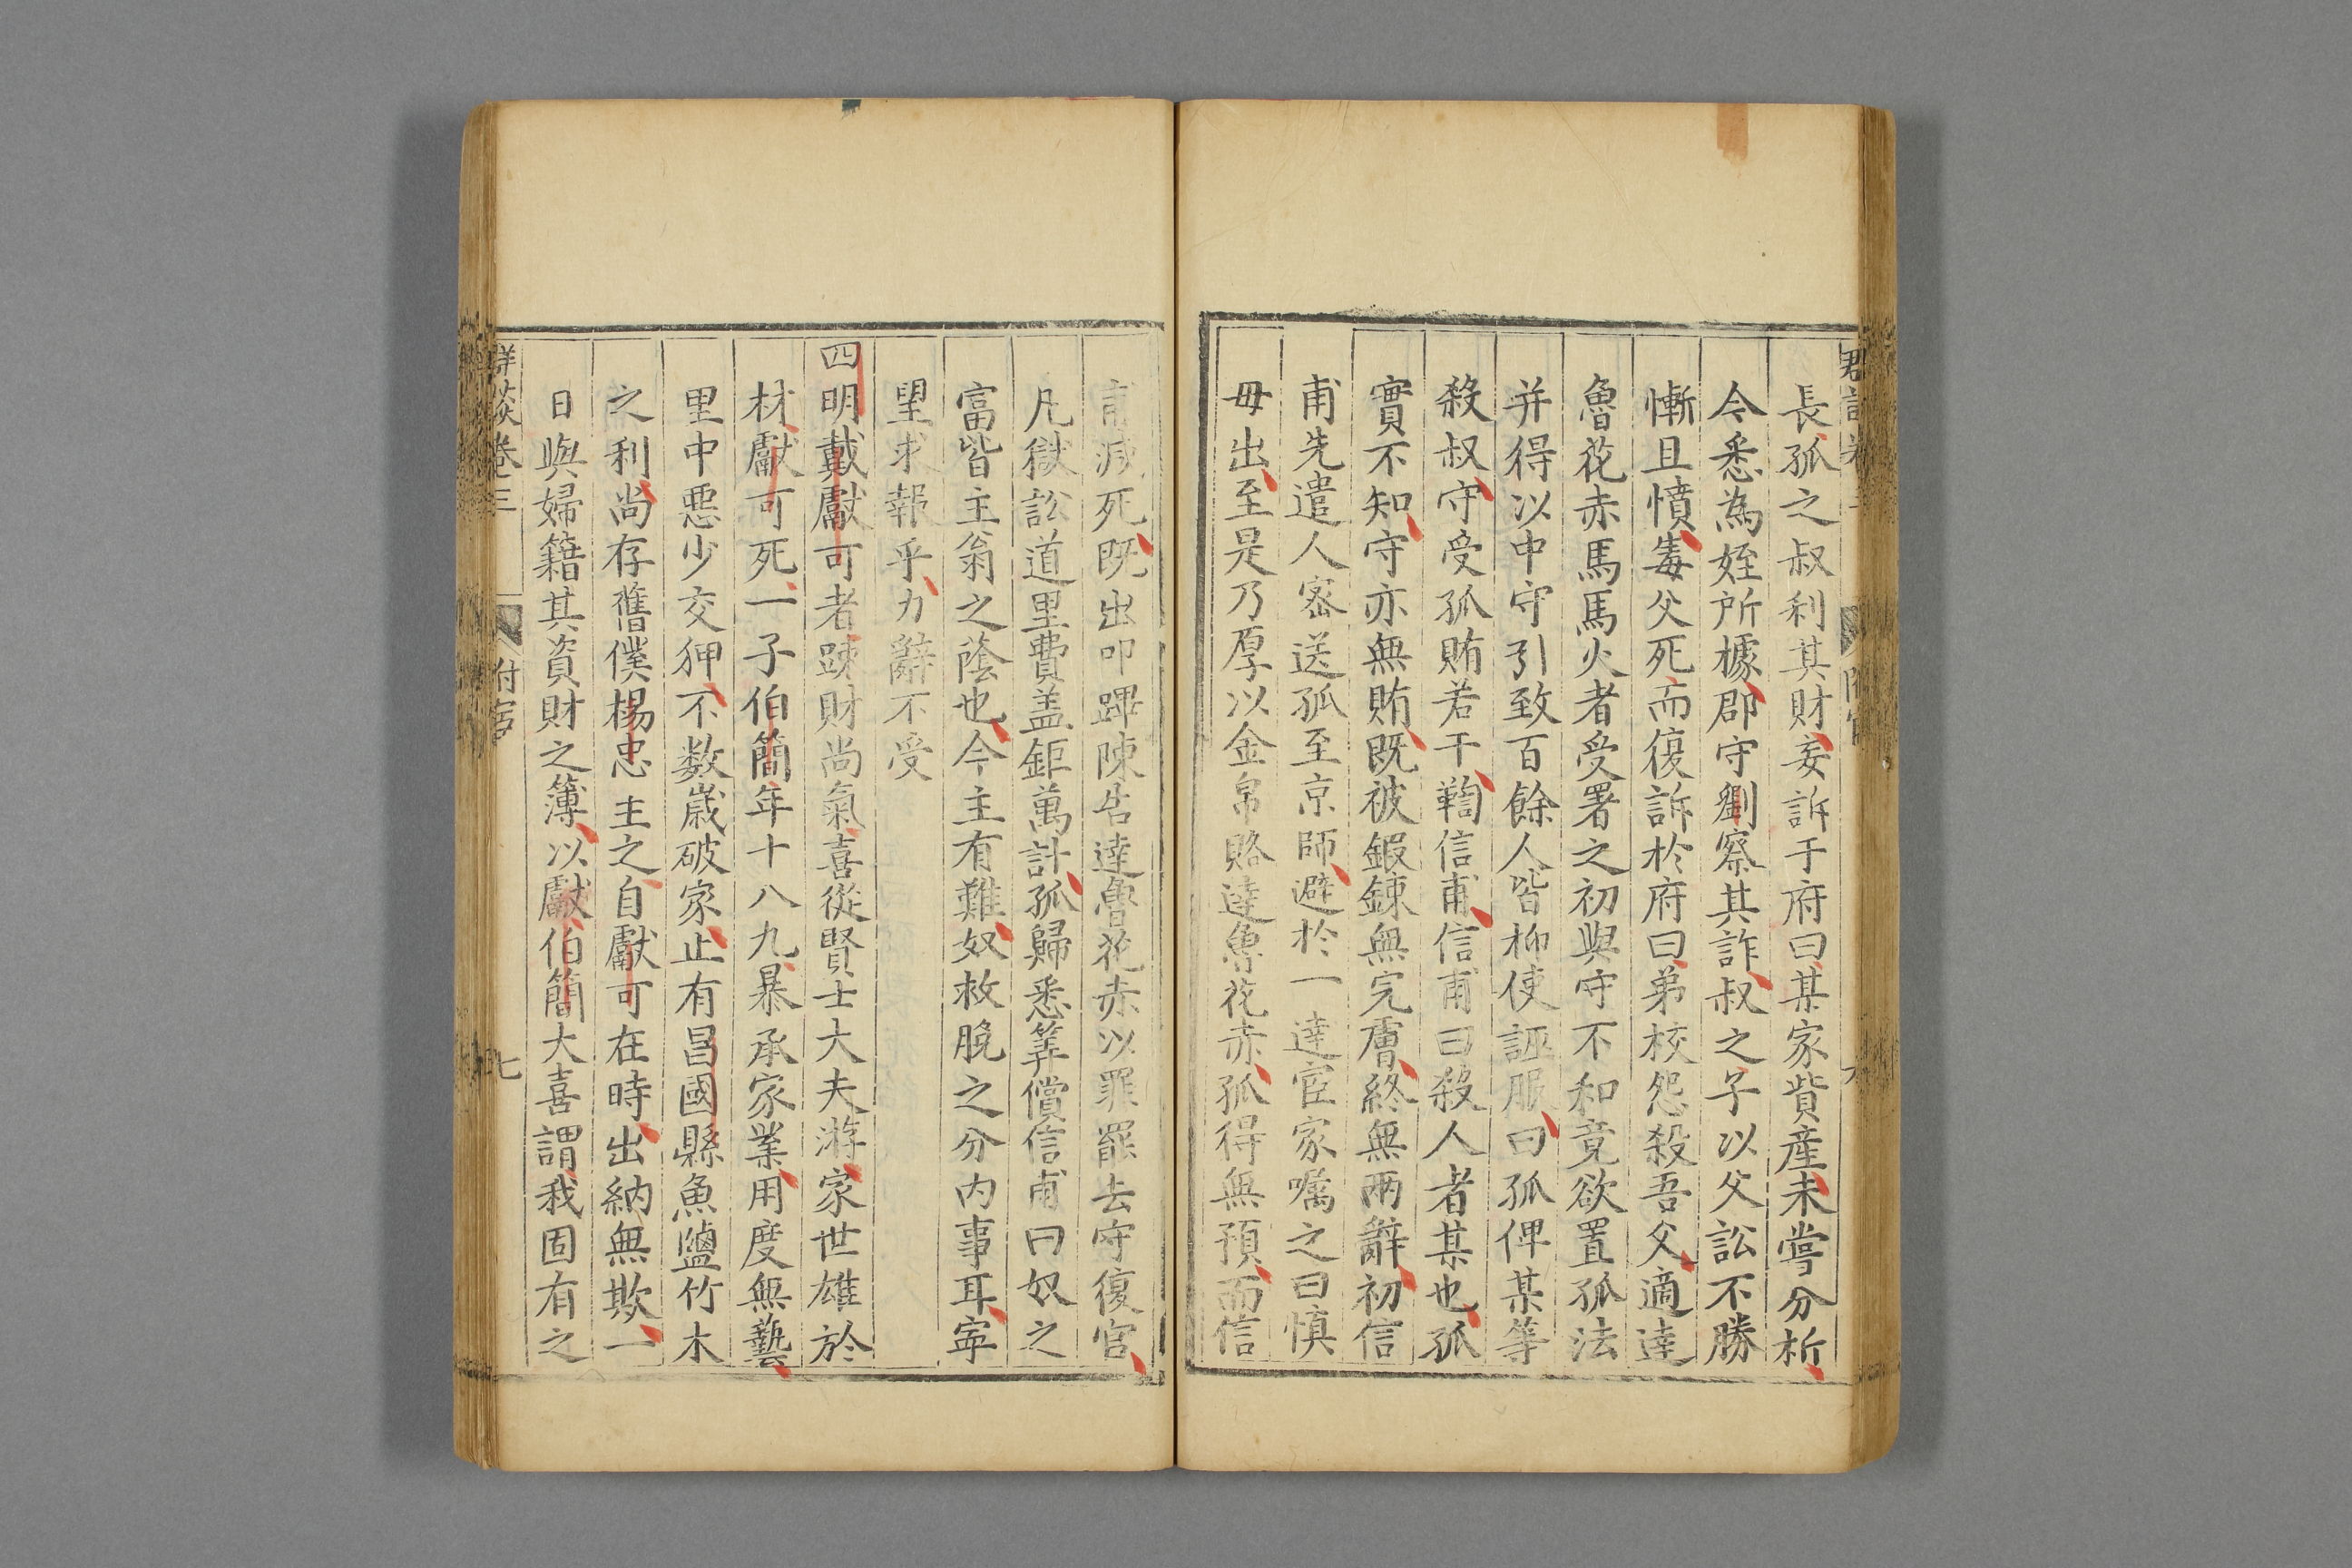 長孤之叔利其財妄訴于府曰某家貲產未嘗分析
今悉為姪所據郡守劉察其詐叔之子以父訟不勝
慚且憤毒父死而復訴於府曰弟挍怨殺吾父適達
魯花赤馬馬火者受署之初與守不和竟欲置孤法
并得以中守引致百餘人皆抑使誣服曰孤俾某等
殺叔守受孤賄若干鞫信甫信甫曰殺人者某也孤
實不知守亦無賄既被鍜鍊無完膚終無兩辭初信
甫先遣人密送孤至京師避於一達宦家囑之曰慎
毋出至是乃厚以金帛賂達魯花赤孤得無預而信
甫減死既出叩蹕陳告達魯花赤以罪罷去守復官
凡獄訟道里費盖鉅萬計孤歸悉筭償信甫曰奴之
富皆主翁之蔭也今主有難奴救脫之分內事耳寧
望求報乎力辭不受
四明戴獻可者踈財尚氣喜從賢士大夫游家世雄於
材獻可死一子伯簡年十八九㬥承家業用度無藝
里中惡少交狎不数歲破家止有昌國縣魚鹽竹木
之利尚存舊僕楊忠主之自獻可在時出納無欺一
日與婦籍其資財之簿以獻伯簡大喜謂我固有之
群談卷三
七